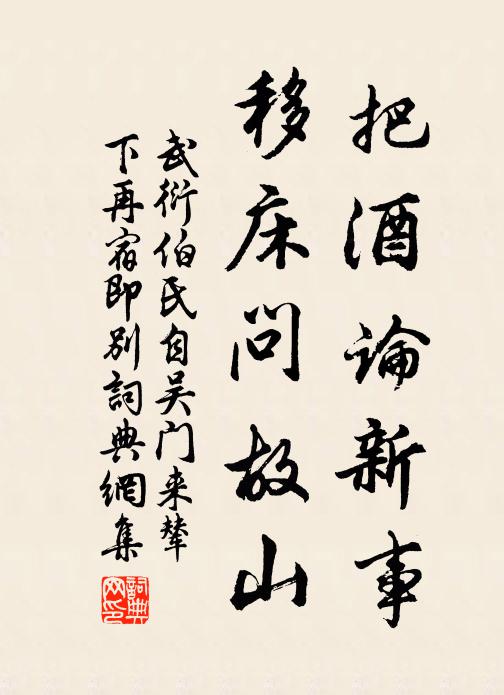 把酒論新事
移床問故山
武衍伯氏自吴门来輦
下再宿即别詞典網集
詞典網印